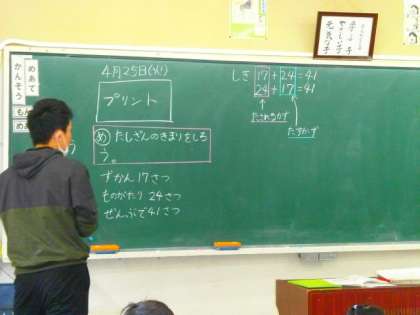 4月25日(火)
プリント
め たしざんのきまりをしろ
う。
ずかん17さつ
ものがたり 24さつ
ぜんぶで41さつ
しき 17+24=41
24+17=41
たされるかず
たすかず
めあて
かんそう
元気な子